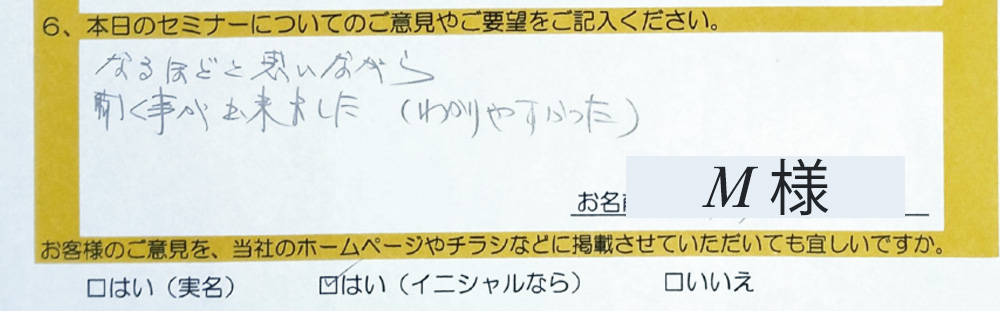 6、本日のセミナーについてのご意見やご要望をご記入ください。
なるほどと思いながら
聞く事が出来ました（わかりやすかった）
お名前 M 様
お客様のご意見を、当社のホームページやチラシなどに掲載させていただいても宜しいですか。
☐はい（実名） ☑はい（イニシャルなら） ☐いいえ